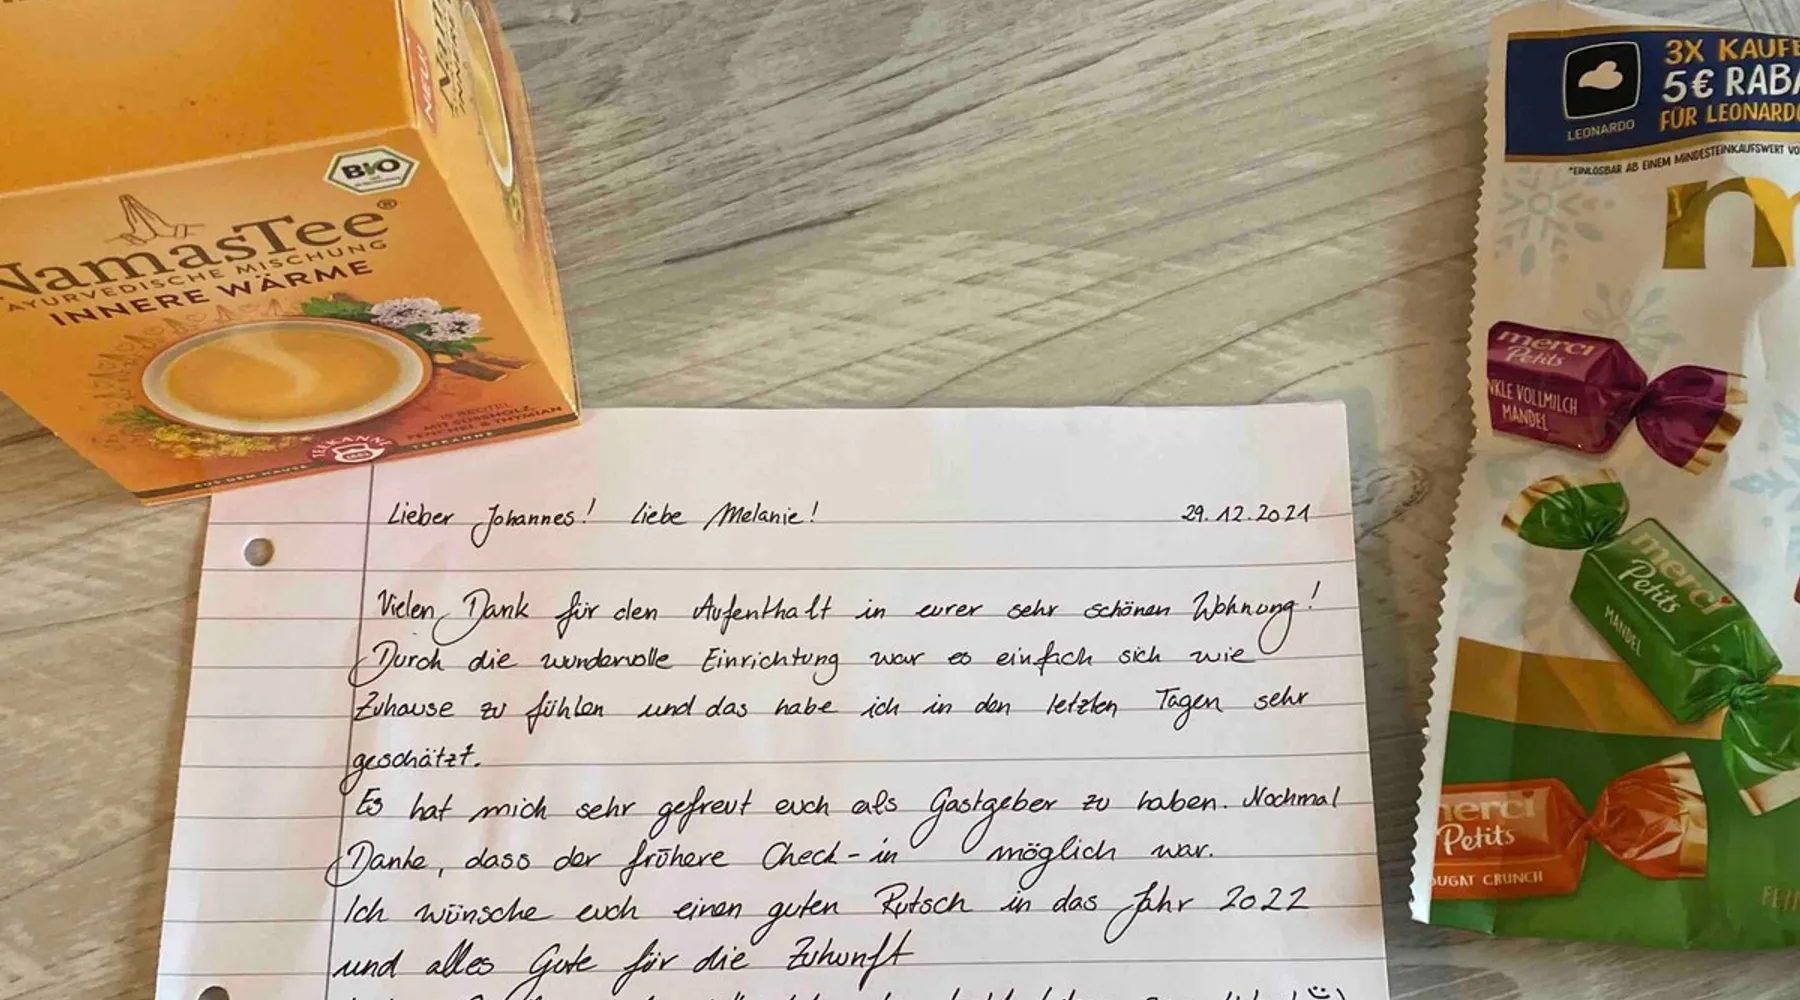 NEU!
BIO
NamasTee®
AYURVEDISCHE MISCHUNG
INNERE WÄRME
15 BEUTEL
MIT SÜSSHOLZ,
FENCHEL & THYMIAN
TEEKANNE
AUS DEM HAUSE TEEKANNE
LEONARDO
3X KAUFE
5€ RABA
FÜR LEONARDO
*EINLÖSBAR AB EINEM MINDESTEINKAUFSWERT VO
m
merci
Petits
NKLE VOLLMILCH
MANDEL
merci
Petits
MANDEL
merci
Petits
OUGAT CRUNCH
Lieber Johannes! Liebe Melanie! 29.12.2021
Vielen Dank für den Aufenthalt in eurer sehr schönen Wohnung!
Durch die wundervolle Einrichtung war es einfach sich wie
Zuhause zu fühlen und das habe ich in den letzten Tagen sehr
geschätzt.
Es hat mich sehr gefreut euch als Gastgeber zu haben. Nochmal
Danke, dass der frühere Check-in möglich war.
Ich wünsche euch einen guten Rutsch in das Jahr 2022
und alles Gute für die Zukunft